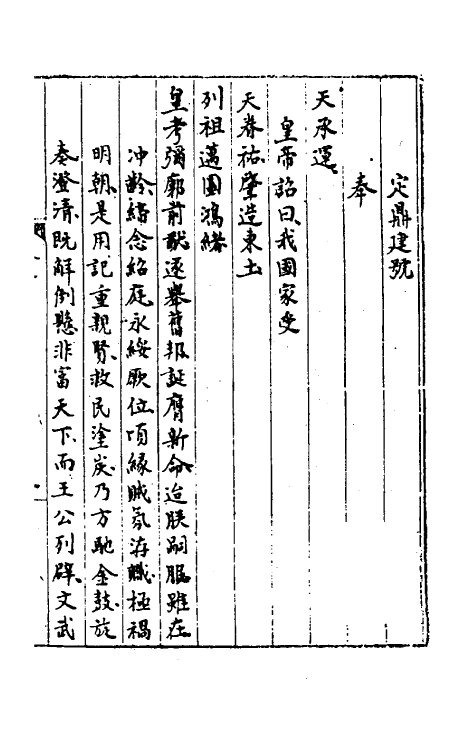 定鼎建號
奉
天承運
皇帝詔曰我國家受
天眷祐肇造東土
列祖邁圖鴻緒
皇考彌廓前猷遂舉舊邦誕膺新命迨朕嗣服雖在
冲齡緒念紹庭永綏厥位頃緣賊氛洊熾極禍
明朝是用記重親賢救民塗炭乃方馳金鼓旋
奏澄清既解倒懸非富天下而王公列辟文武